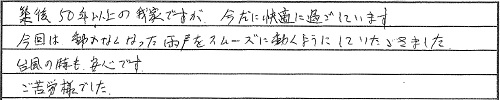 築後50年以上の我家ですが、今だに快適に過ごしています
今回は動かなくなった雨戸をスムーズに動くようにしていただきました
台風の時も安心です。
ご苦労様でした。